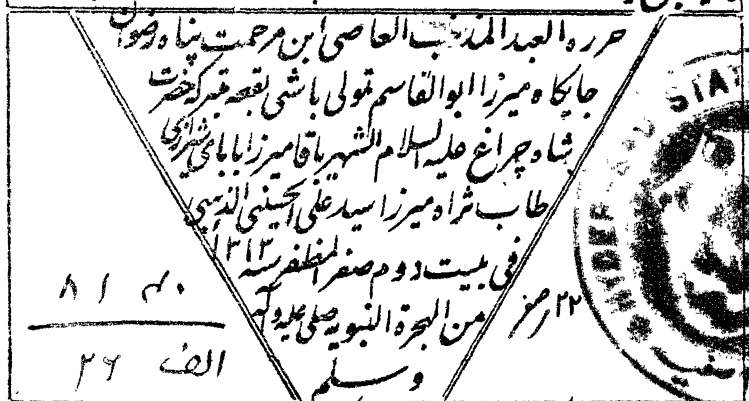 حرره العبد المذنب العاصی ابن مرحمت پناه رضوان
جایگاه میرزا ابوالقاسم متولی باشی بقعه متبرکه حضرت
شاه چراغ علیه السلام الشهیر باقا میرزا بابای شیرازی
طاب ثراه میرزا سید علی الحسینی الذهبی
فی بیست دوم صفر المظفر سنه ۱۳۱۲
من الهجرة النبویه صلی علیه وآله
وسلم
۲۲ صفر
۸۱
الف ۲۶
HYDERABAD STATE